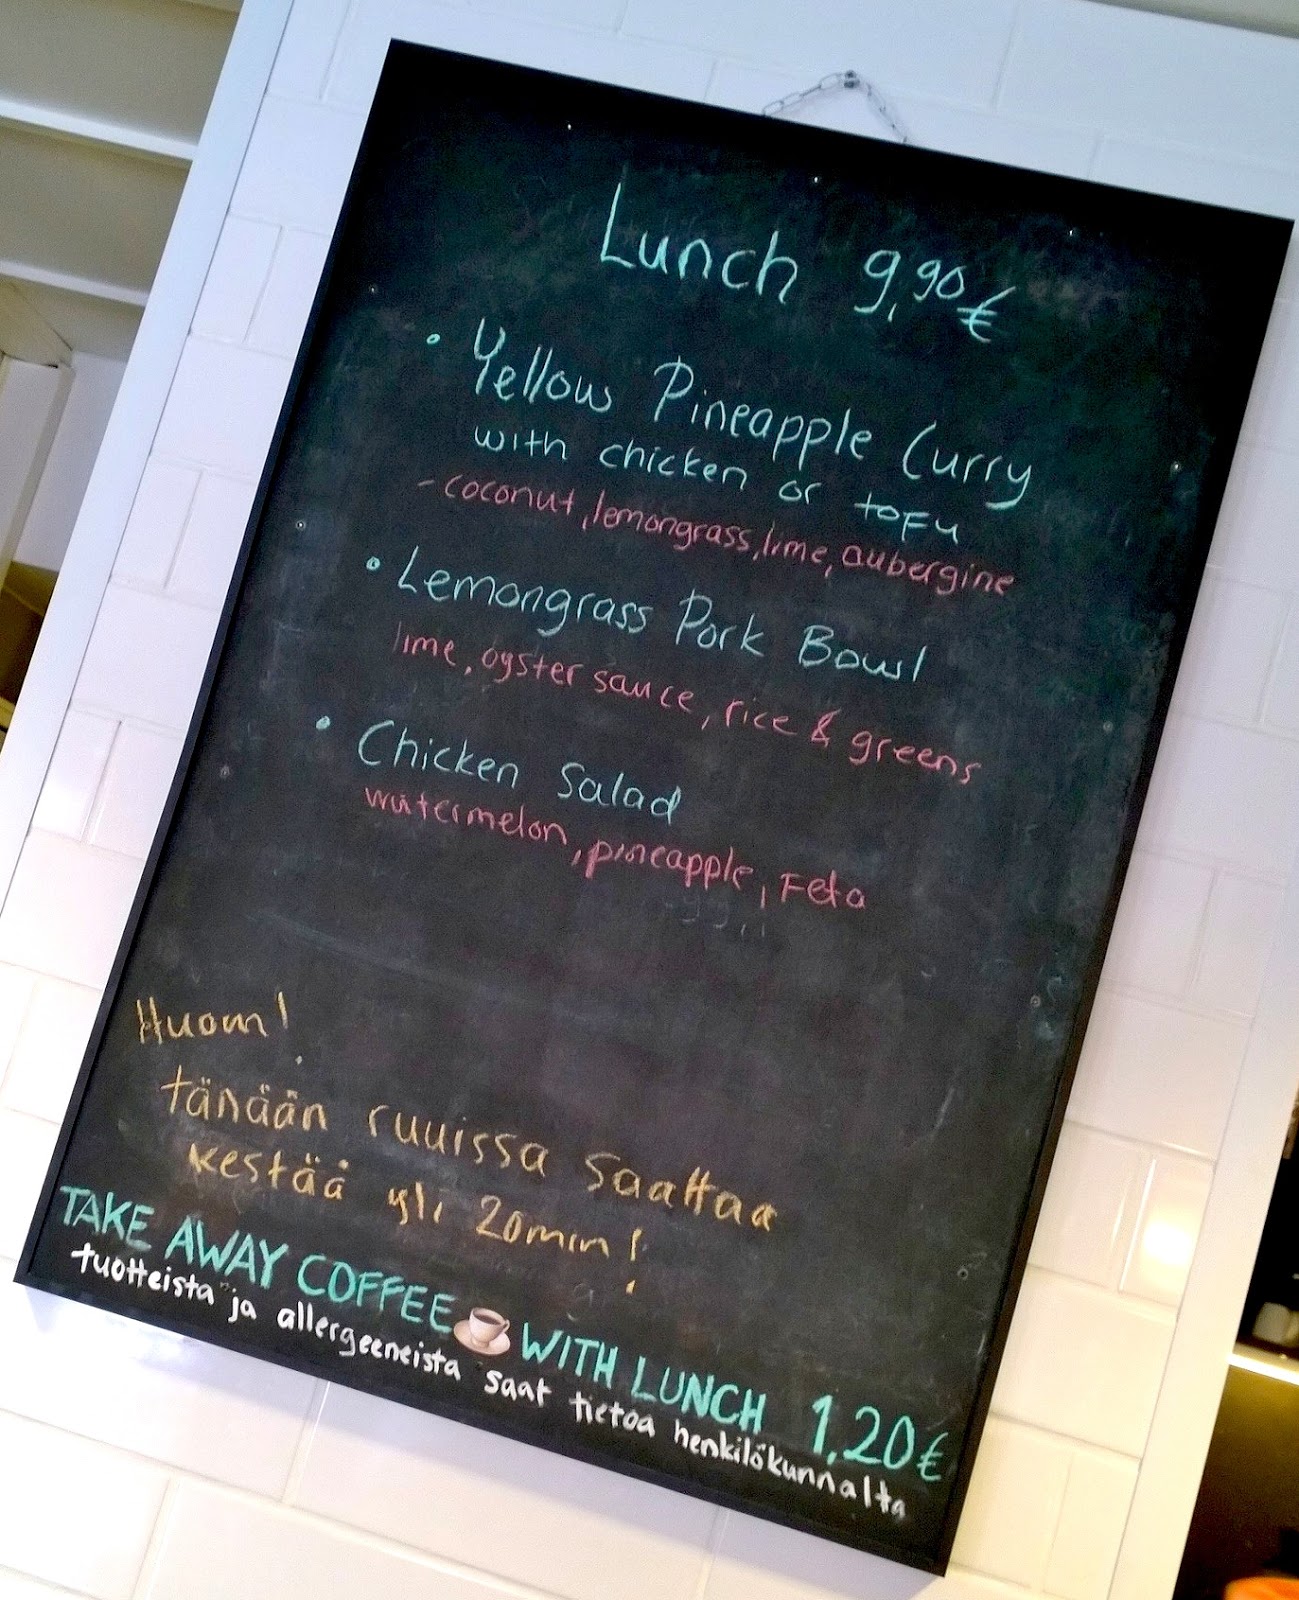 Lunch 9,90€
• Yellow Pineapple Curry
with chicken or tofu
- coconut, lemongrass, lime, aubergine
• Lemongrass Pork Bowl
lime, oyster sauce, rice & greens
• Chicken Salad
watermelon, pineapple, Feta
Huom!
tänään ruuissa saattaa
kestää yli 20min!
TAKE AWAY COFFEE WITH LUNCH 1,20€
tuotteista ja allergeeneista saat tietoa henkilökunnalta